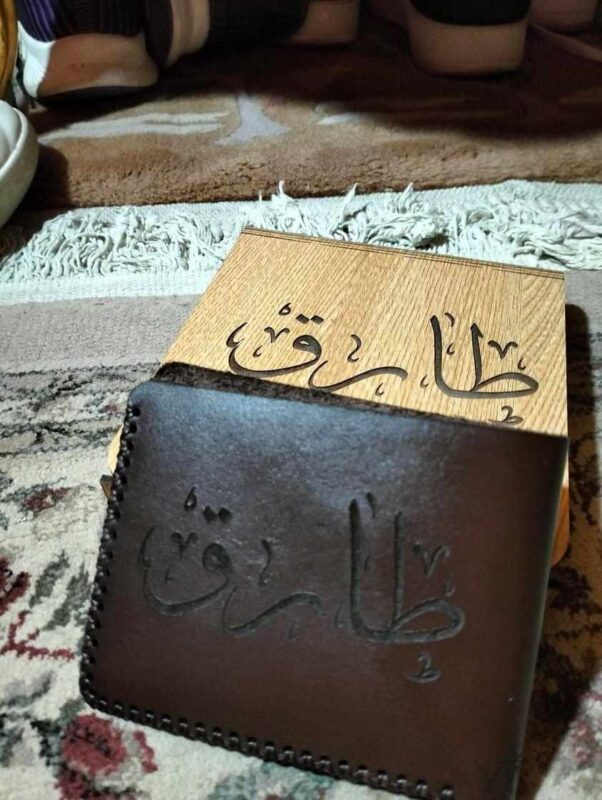 طارق
طارق